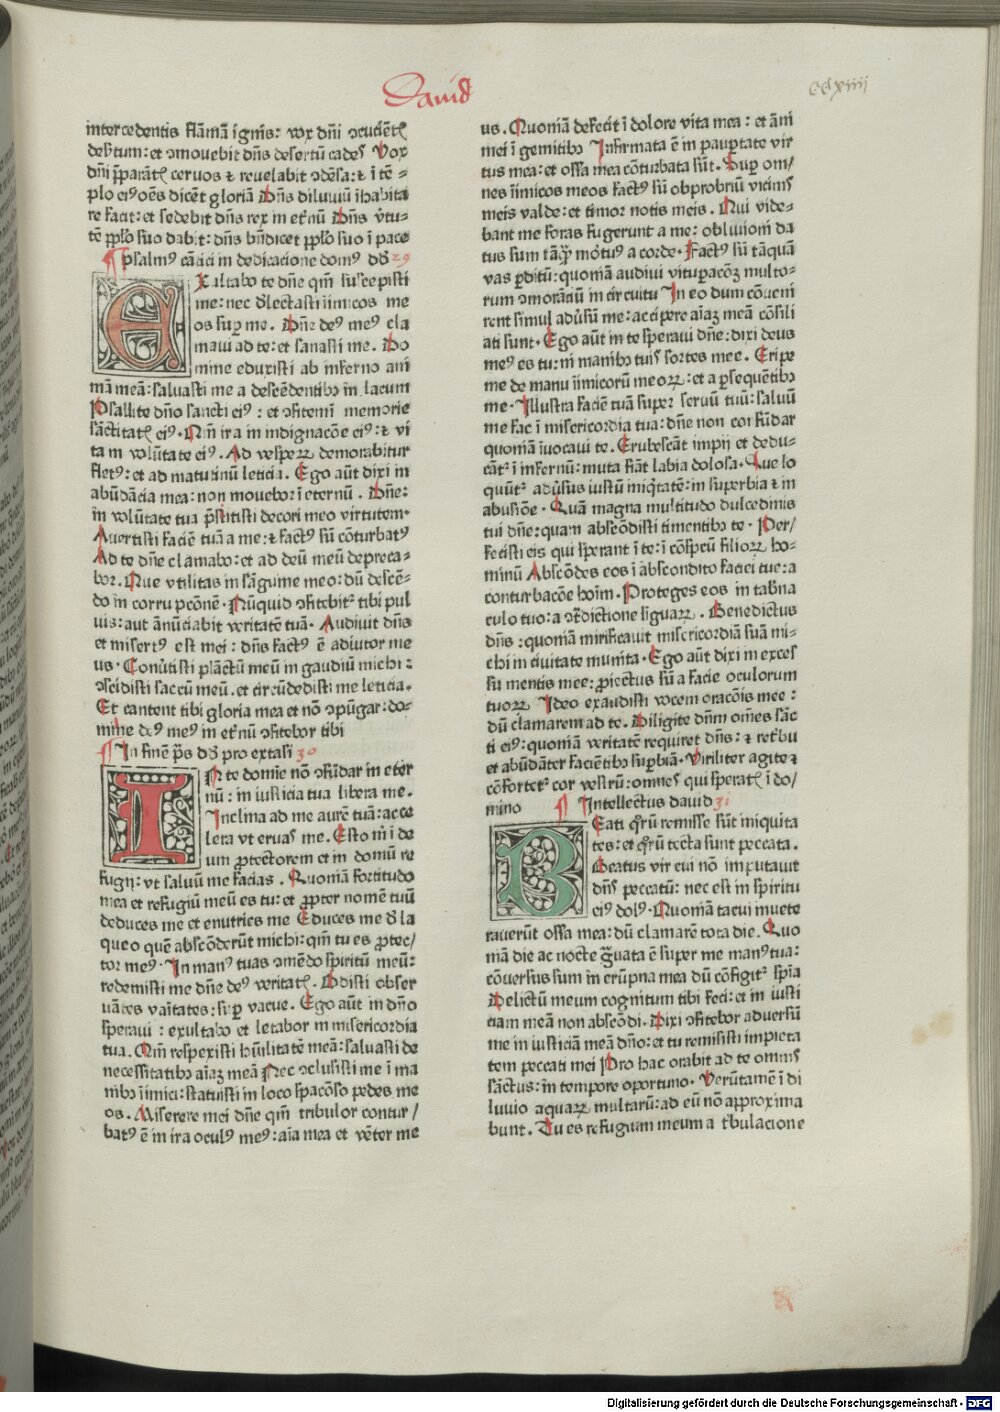 Dauid
ccxiiij
intercedentis flāmā ignis: vox dn̄i ↄcuciēt&
desertum: et ↄmouebit dn̄s desertū cades Vox
dn̄i p̄parāt& ceruos & reuelabit ↄdēsa: & i tē =
plo eiꝰ oēs dicēt gloriā Dn̄s diluuiū ihabita
re facit: et sedebit dn̄s rex in et̄nū Dn̄s v̄tu-
tē pp̄lo suo dabit: dn̄s bn̄dicet pp̄lo suo i pace
¶ psalmꝰ cātici in dedicacione domꝰ dd̄ 29
Exaltabo te dn̄e qm̄ suscepisti
me: nec d̄lectasti iimicos me
os suꝑ me. Dn̄e deꝰ meꝰ cla
maui ad te: et sanasti me. Do
mine eduxisti ab inferno ani
mā meā: saluasti me a descēdentibꝫ in lacum
Psallite dn̄o sancti eiꝰ: et ↄfitemī memorie
sāctitat& eiꝰ. Qm̄ ira in indignacōe eiꝰ: & vi
ta in volūtate eiꝰ. Ad vesperꝝ demorabitur
fletꝰ: et ad matutinū leticia. Ego aūt dixi in
abūdācia mea: non mouebor i eternū. Dn̄e:
in volūtate tua p̄stitisti decori meo virtutem.
Auertisti faciē tuā a me: & factꝰ sū cōturbatꝰ
Ad te dn̄e clamabo: et ad deū meū depreca-
bor. Que vtilitas in sāguine meo: dū descē-
do in corrupcōnē. Nūquid ↄfitebit' tibi pul
uis: aut ānūciabit veritatē tuā. Audiuit dn̄s
et misertꝰ est mei: dn̄s factꝰ ē adiutor me
us. Conūtisti plāctū meū in gaudiū michi:
ↄscidisti saccū meū. et circūdedisti me leticia.
Et cantent tibi gloria mea et nō ↄpūgar: do-
mine deꝰ meꝰ in et̄nū ↄfitebor tibi
¶ In finē p̄s dd̄ pro extasi 30
In te domīe nō ↄfūdar in eter
nū: in iusticia tua libera me.
Inclina ad me aurē tuā: acce
lera vt eruas me. Esto m̄ i de
um ꝓtectorem et in domū re
fugij: vt saluū me facias. Quoniā fortitudo
mea et refugiū meū es tu: et ꝓpter nomē tuū
deduces me et enutries me Educes me d̄ la
queo quē abscōderūt michi: qm̄ tu es ꝓtec/
tor meꝰ. In manꝰ tuas ↄmēdo spiritū meū:
redemisti me dn̄e deꝰ veritat&. Odisti obser
uātes vaītates: suꝑ vacue. Ego aūt in dn̄o
speraui: exultabo et letabor in misericordia
tua. Qm̄ respexisti hūilitatē meā: saluasti de
necessitatibꝫ aīaꝫ meā Nec ↄclusisti me i ma
nibꝫ iimici: statuisti in loco spacōso pedes me
os. Miserere mei dn̄e qm̄ tribulor contur/
batꝰ ē in ira oculꝰ meꝰ: aīa mea et vēter me
us. Quoniā defecit i dolore vita mea: et āni
mei i gemitibꝫ Infirmata ē in pauꝑtate vir
tus mea: et ossa mea cōturbata sūt. Suꝑ om/
nes iimicos meos factꝰ sū obprobriū vicinis
meis valde: et timor notis meis. Qui vide-
bant me foras fugerunt a me: obliuioni da
tus sum tāq̄ꝫ mōtuꝰ a corde. Factꝰ sū tāquā
vas ꝑditū: quoniā audiui vituꝑacōꝫ multo-
rum ↄmorāciū in circuitu In eo dum cōueni
rent simul adūsū me: accipere aīaꝫ meā cōsili
ati sunt. Ego aūt in te speraui dn̄e: dixi deus
meꝰ es tu: in manibꝫ tuis sortes mee. Eripe
me de manu iimicorū meoꝝ: et a ꝑsequētibꝫ
me. Illustra faciē tuā super seruū tuū: saluū
me fac i misericordia tua: dn̄e non confūdar
quoniā iuocaui te. Erubescāt impij et dedu-
cāt' i infernū: muta fiāt labia dolosa. Que lo
quūt' adūsus iustū iniq̄tatē: in superbia & in
abusiōe. Quā magna multitudo dulcedinis
tui dn̄e: quam abscōdisti timentibꝫ te. Per/
fecisti eis qui sperant i te: i cōspcū filioꝝ ho-
minū Abscōdes eos i abscondito faciei tue: a
conturbacōe hoim̄. Proteges eos in tab̄na
culo tuo: a ↄt̄dictione liguaꝝ. Benedictus
dn̄s: quoniā mirificauit misericordiā suā mi-
chi in ciuitate munita. Ego aūt dixi in exces
su mentis mee: ꝓiectus sū a facie oculorum
tuoꝝ Ideo exaudisti vocem oracōis mee:
dū clamarem ad te. Diligite dn̄m om̄es sāc
ti eiꝰ: quoniā veritatē requiret dn̄s: & ret̄bu
et abūdāter faciētibꝫ suꝑbiā. Viriliter agite &
cōfortet' cor vestrū: omnes qui sperat& i do/
mino ¶ Intellectus dauid 31
Beati q̄rū remisse sūt iniquita
tes: et q̄rū tecta sunt peccata.
Beatus vir cui nō imputauit
dn̄s peccatū: nec est in spiritu
eiꝰ dolꝰ. Quoniā tacui inuete
rauerūt ossa mea: dū clamarē tota die. Quo
niā die ac nocte g̃uata ē super me manꝰ tua:
cōuersus sum in erūpna mea dū cōfigit' spīa
Delictū meum cognitum tibi feci: et in iusti
ciam meā non abscōdi. Dixi ↄfitebor aduersū
me in iusticiā meā dn̄o: et tu remisisti impieta
tem peccati mei Pro hac orabit ad te omnis
sāctus: in tempore oportuno. Verūtamē i di
luuio aquaꝝ multarū: ad eū nō approxima
bunt. Tu es refugium meum a t̄bulacione
Digitalisierung gefördert durch die Deutsche Forschungsgemeinschaft - DFG